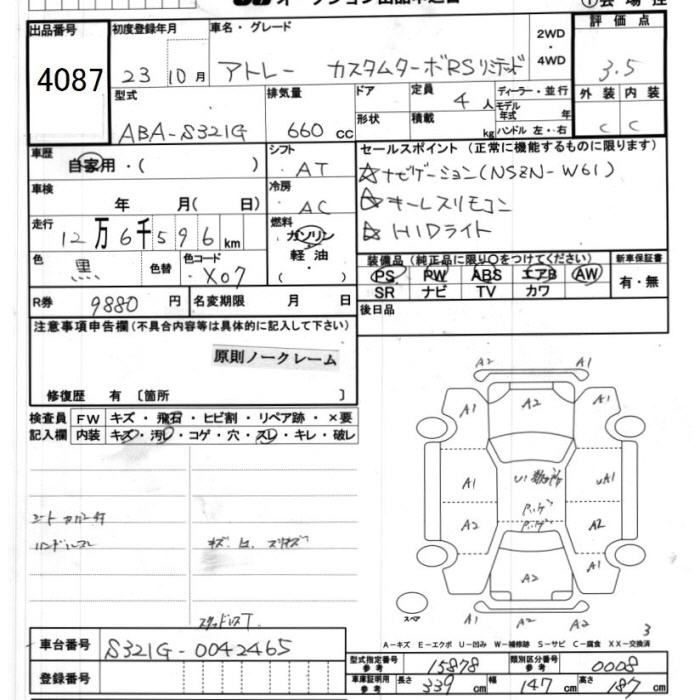 出品番号 4087
初度登録年月 23 10月
車名・グレード アトレー カスタムターボRSリミテッド
2WD・4WD
評価点 3.5
型式 ABA-S321G
排気量 660 cc
ドア 形状
定員 4 人
積載 kg
ディーラー・並行
モデル年式 年
ハンドル 左・右
外装 C 内装 C
車歴 自家用・( )
シフト AT
セールスポイント (正常に機能するものに限ります)
☆ナビゲーション(NSZN-W61)
☆キーレスリモコン
☆HIDライト
車検 年 月( 日)
冷房 AC
走行 12万6千596km
燃料 ガソリン 軽油・( )
色 黒 色替 色コード X07
装備品 (純正品に限り○をつけてください)
PS PW ABS エアB AW
SR ナビ TV カワ
新車保証書 有・無
R券 9880 円 名変期限 月 日
後日品
注意事項申告欄(不具合内容等は具体的に記入して下さい)
原則ノークレーム
修復歴 有 〔箇所 〕
検査員記入欄 FW キズ・飛石・ヒビ割・リペア跡・×要
内装 キズ・汚レ・コゲ・穴・スレ・キレ・破レ
A2 A1
A1 A2 A1
A1 U1 uA1
A2 A2
A1 A2 A1
スペア
A1 A2 A2
3
A-キズ E-エクボ U-凹み W-補修跡 S-サビ C-腐食 XX-交換済
車台番号 S321G-0042465
登録番号
型式指定番号 参考 15878 類別区分番号 参考 0008
車庫証明用 参考 長さ 339 cm 幅 147 cm 高さ 187 cm